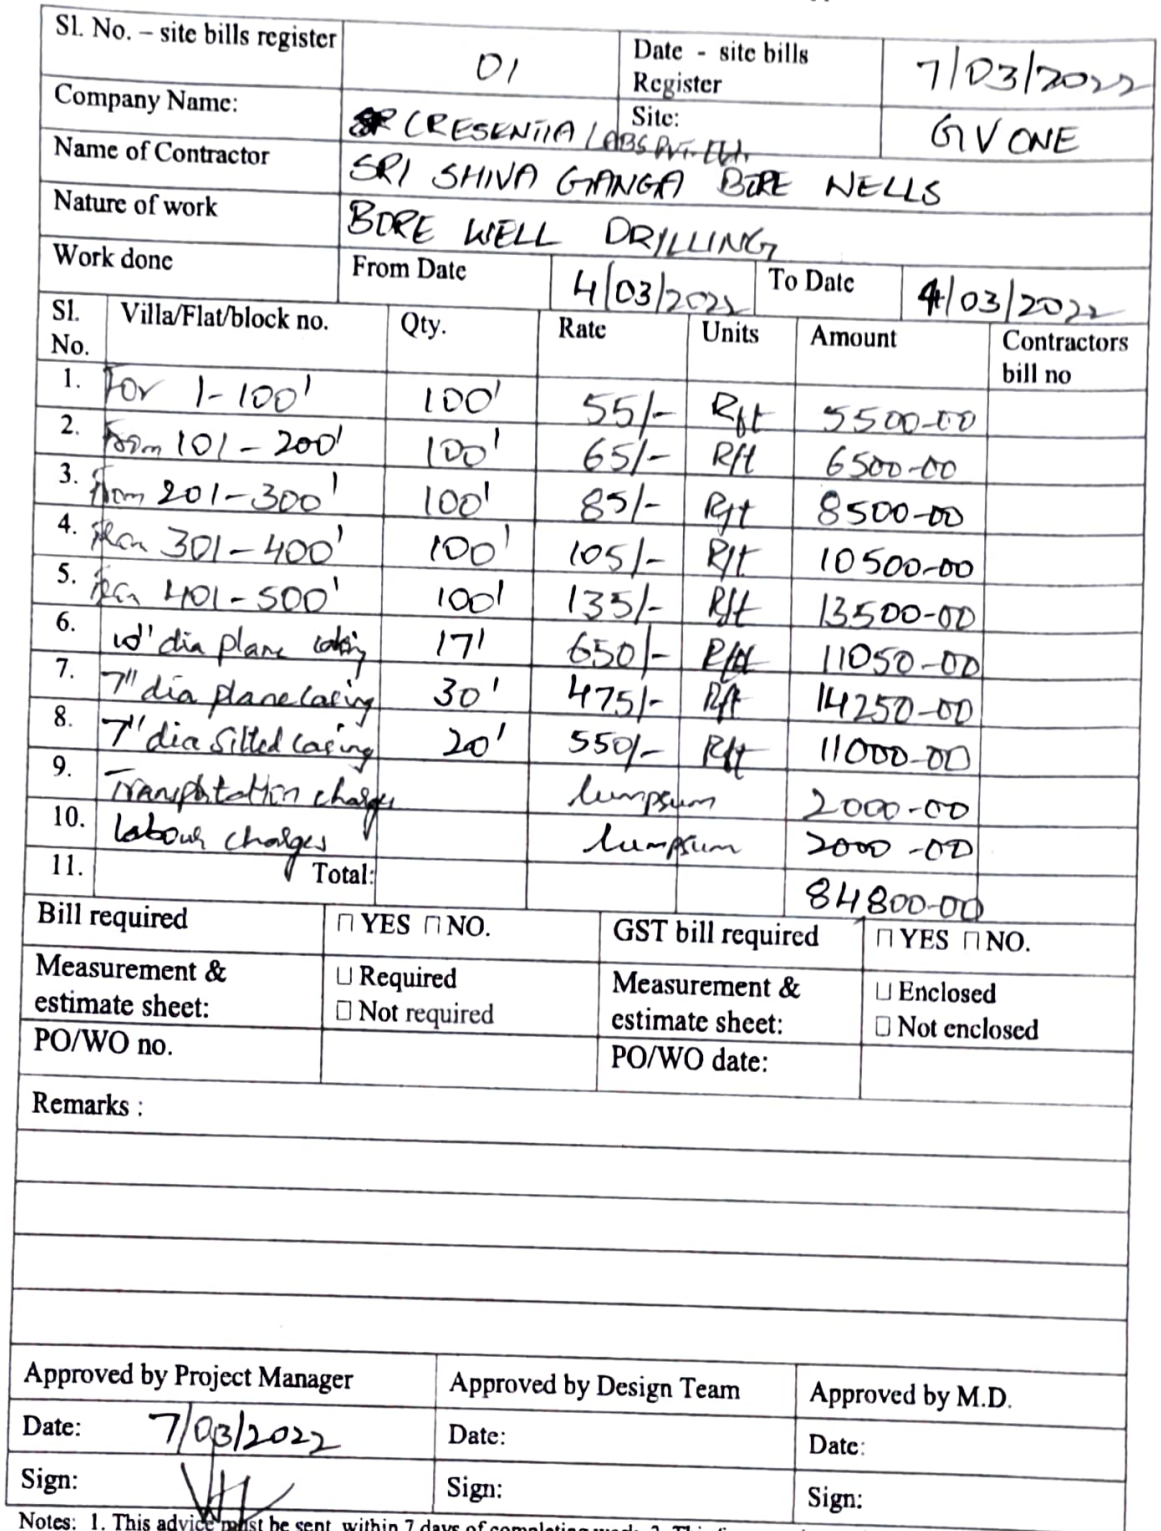 Sl. No. – site bills register 01 Date - site bills Register 7/03/2022
Company Name: CRESENTIA LABS PVT. Ltd. Site: GV ONE
Name of Contractor SRI SHIVA GANGA BORE WELLS
Nature of work BORE WELL DRILLING
Work done From Date 4/03/2022 To Date 4/03/2022
Sl. No. Villa/Flat/block no. Qty. Rate Units Amount Contractors bill no
1. For 1-100' 100' 55/- Rft 5500-00
2. From 101-200' 100' 65/- Rft 6500-00
3. From 201-300' 100' 85/- Rft 8500-00
4. From 301-400' 100' 105/- Rft 10500-00
5. From 401-500' 100' 135/- Rft 13500-00
6. 10' dia plane casing 17' 650/- Rft 11050-00
7. 7" dia plane casing 30' 475/- Rft 14250-00
8. 7" dia Silted casing 20' 550/- Rft 11000-00
9. Transportation charges lumpsum 2000-00
10. labour charges lumpsum 2000-00
11. Total: 84800-00
Bill required □ YES □ NO. GST bill required □ YES □ NO.
Measurement & estimate sheet: □ Required □ Not required Measurement & estimate sheet: □ Enclosed □ Not enclosed
PO/WO no. PO/WO date:
Remarks :
Approved by Project Manager Approved by Design Team Approved by M.D.
Date: 7/03/2022 Date: Date:
Sign: Sign: Sign:
Notes: 1. This advice must be sent within 7 days of completing work. 2. This